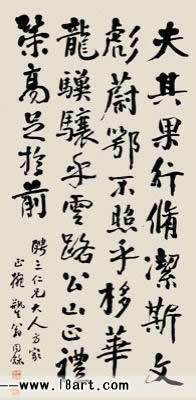 夫其果行脩潔斯文
彪蔚鄂不照乎移華
龍驥驤乎雲路公山正禮
策高足於前
聘三仁兄大人方家
正擬 瓶生翁同龢
www.18art.com